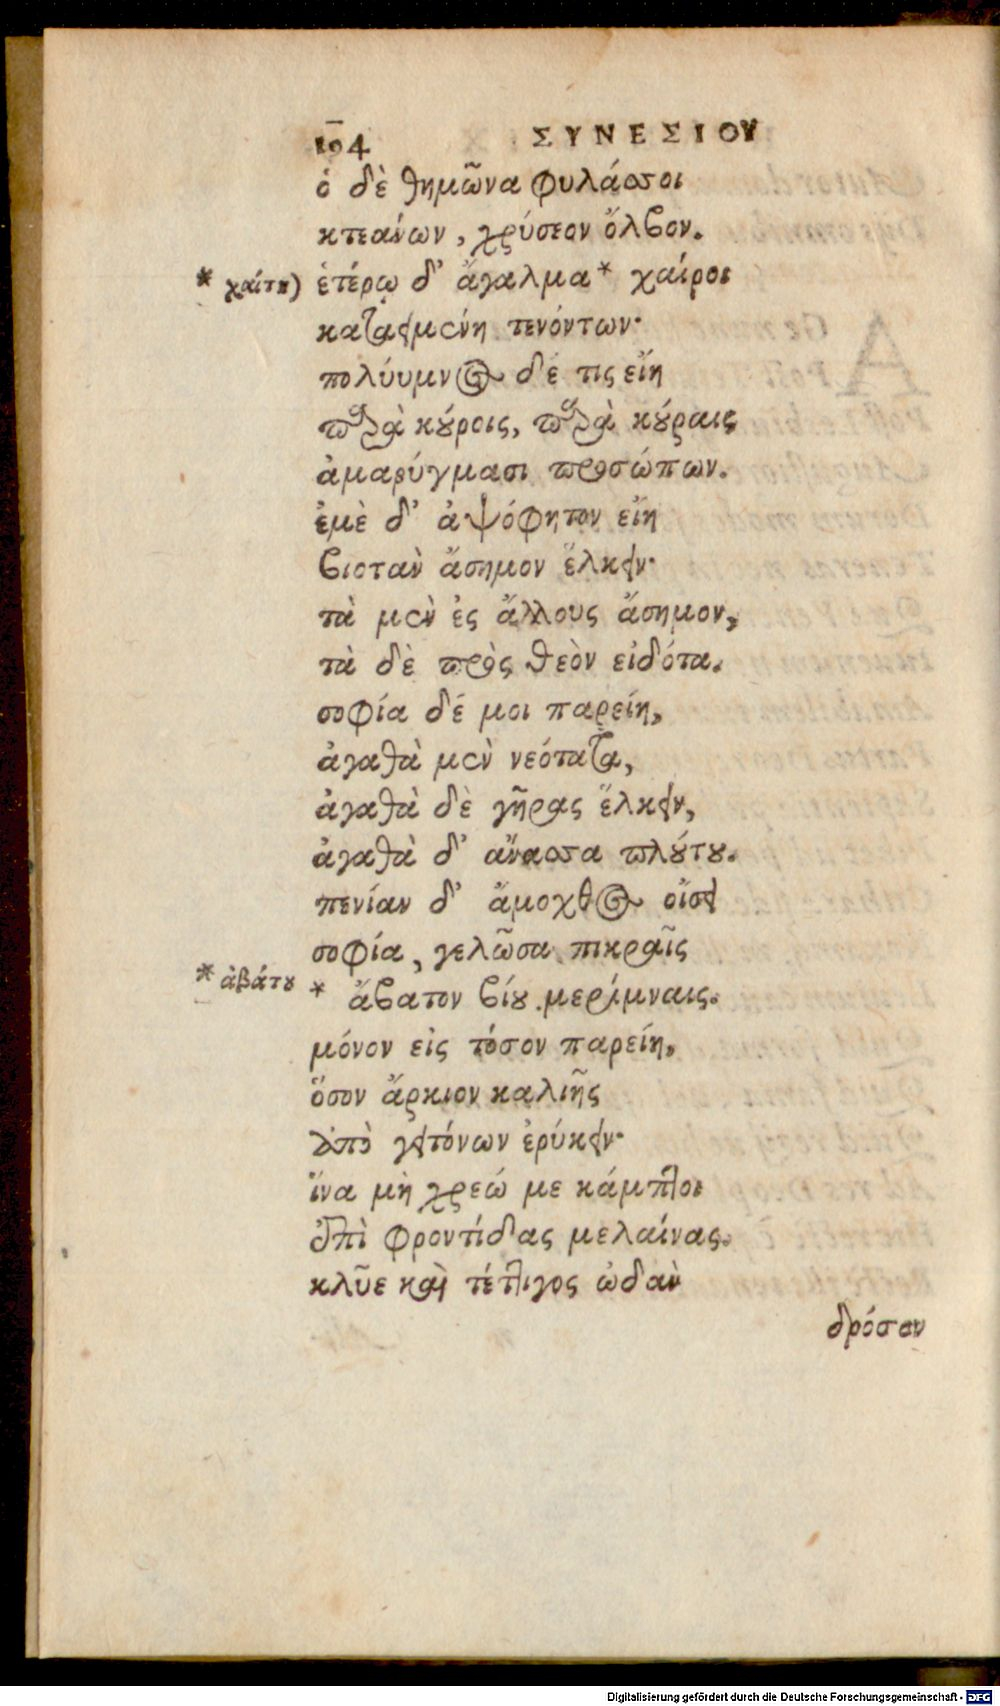 104 ΣΥΝΕΣΙΟΥ
ὁ δὲ θημῶνα φυλάσσοι
κτεάνων, χρύσεον ὄλβον.
* χαίτη) ἑτέρῳ δ' ἄγαλμα* χαίροι
καταειμένη τενόντων·
πολύυμνος δέ τις εἴη
παρὰ κούροις, παρὰ κούραις
ἀμαρύγμασι προσώπων.
ἐμὲ δ' ἀψόφητον εἴη
βιοτὰν ἄσημον ἕλκειν·
τὰ μὲν ἐς ἄλλους ἄσημον,
τὰ δὲ πρὸς θεὸν εἰδότα.
σοφία δέ μοι παρείη,
ἀγαθὰ μὲν νεότατα,
ἀγαθὰ δὲ γῆρας ἕλκειν,
ἀγαθὰ δ' ἄνασσα πλούτου.
πενίαν δ' ἄμοχθος οἴσει
σοφία, γελῶσα πικραῖς
* ἀβάτου * ἄβατον βίου μερίμναις.
μόνον εἰς τόσον παρείη,
ὅσον ἄρκιον καλιῆς
ἀπὸ γειτόνων ἐρύκειν·
ἵνα μὴ χρεώ με κάμπτοι
ἐπὶ φροντίδας μελαίνας.
κλῦε καὶ τέττιγος ᾠδὰν
δρόσον
Digitalisierung gefördert durch die Deutsche Forschungsgemeinschaft - DFG